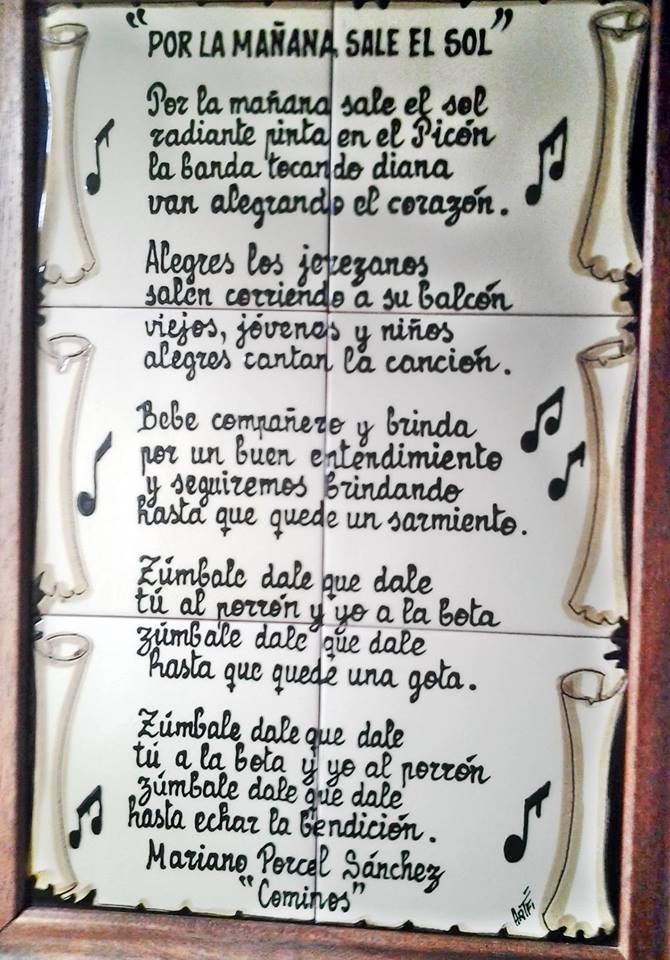 "POR LA MAÑANA SALE EL SOL"
Por la mañana sale el sol
radiante pinta en el Picón
la banda tocando diana
van alegrando el corazón.
Alegres los jerezanos
salen corriendo a su balcón
viejos, jóvenes y niños
alegres cantan la canción.
Bebe compañero y brinda
por un buen entendimiento
y seguiremos brindando
hasta que quede un sarmiento.
Zúmbale dale que dale
tú al porrón y yo a la bota
zúmbale dale que dale
hasta que quede una gota.
Zúmbale dale que dale
tú a la bota y yo al porrón
zúmbale dale que dale
hasta echar la bendición.
Mariano Porcel Sánchez
"Cominos"
ARTFI